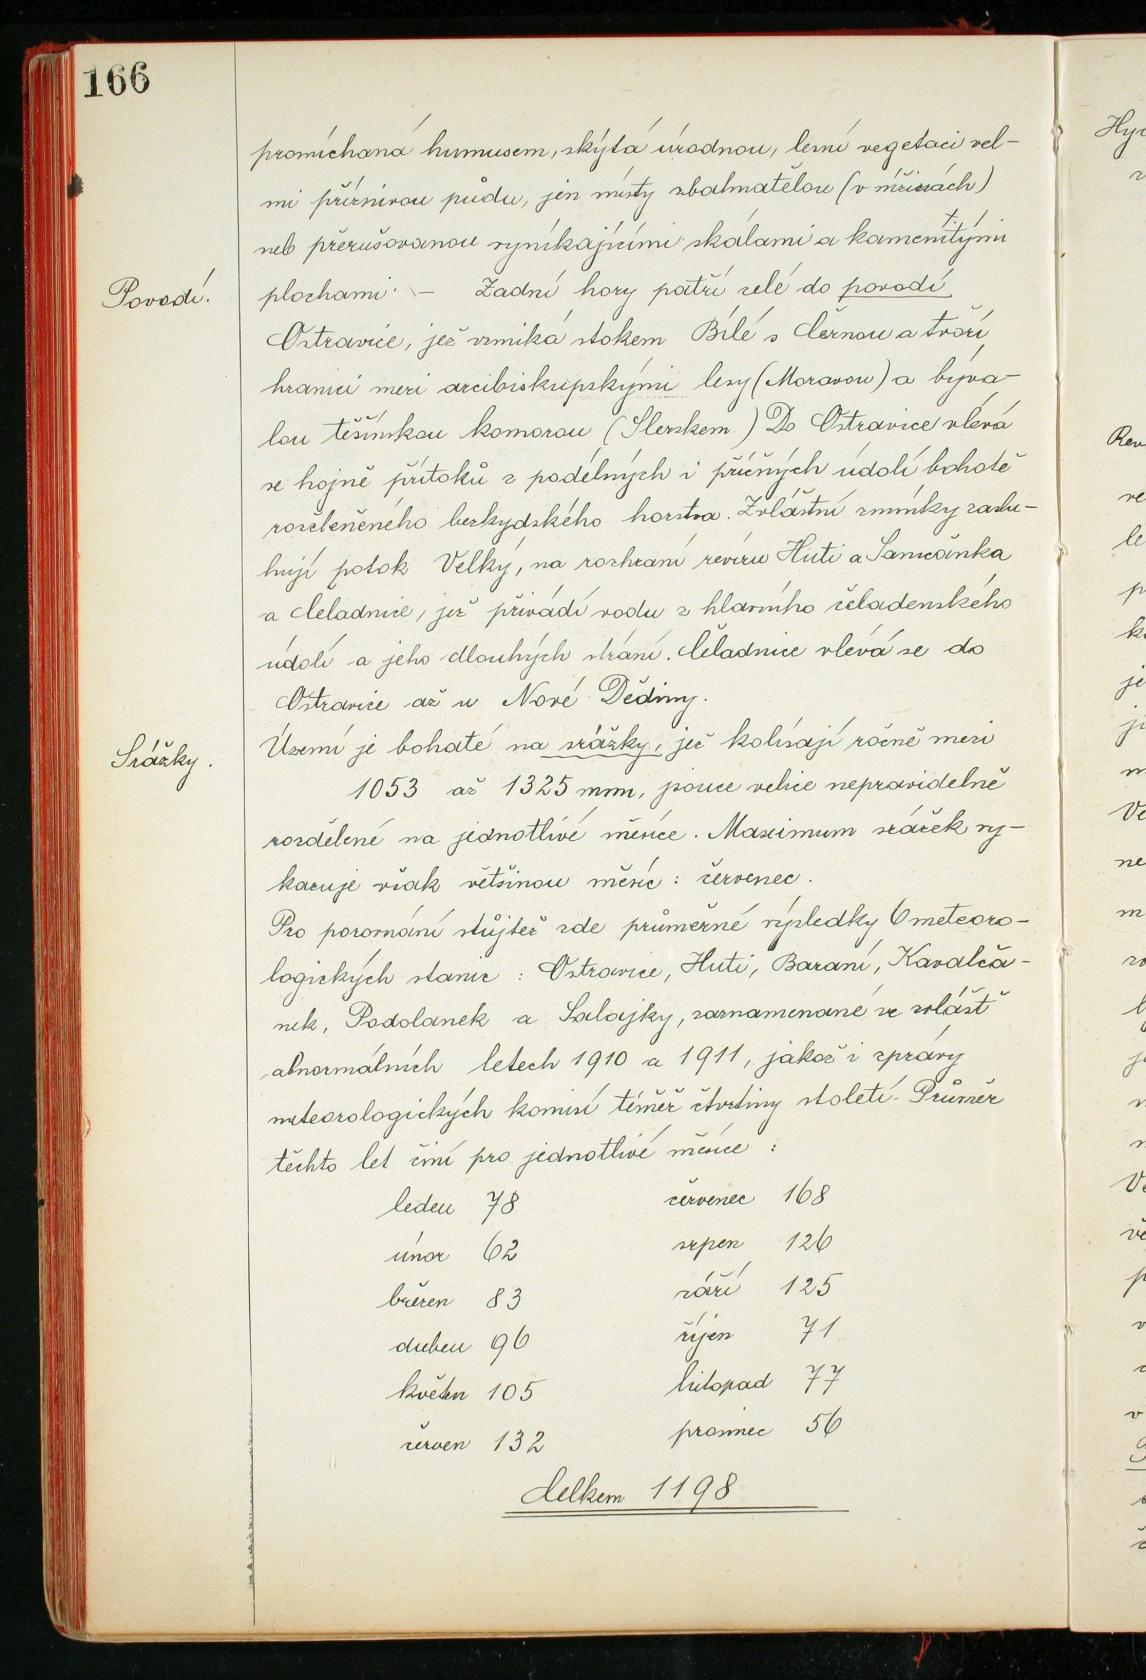 166
promíchaná humusem, skýtá úrodnou, lesní vegetaci vel-
mi příznivou půdu, jen místy zbahnatělou (v mřizách)
neb přerušovanou vynikajícími skálami a kamenitými
Povodí.
plochami. - Zadní hory patří celé do povodí
Ostravice, jež vzniká stokem Bílé s Černou a tvoří
hranici mezi arcibiskupskými lesy (Moravou) a býva-
lou těšínskou komorou (Slezskem.) Do Ostravice vlévá
se hojně přítoků z podélných i příčných údolí bohatě
rozčleněného bezkydského horstva. Zvláštní zmínky zaslu-
hují potok Velký, na rozhraní revíru Huti a Samčánka
a Čeladnice, jež přivádí vodu z hlavního čeladenského
údolí a jeho dlouhých strání. Čeladnice vlévá se do
Ostravice až u Nové Dědiny.
Srážky.
Území je bohaté na srážky, jež kolísají ročně mezi
1053 až 1325 mm, jsouce velice nepravidelně
rozdělené na jednotlivé měsíce. Maximum srážek vy-
kazuje však většinou měsíc: červenec.
Pro porovnání stůjtež zde průměrné výsledky 6 meteoro-
logických stanic: Ostravice, Huti, Baraní, Kavalčá-
nek, Podolanek a Salajky, zaznamenané ve zvlášť
abnormálních letech 1910 a 1911, jakož i zprávy
meteorologických komisí téměř čtvrtiny století. Průměr
těchto let činí pro jednotlivé měsíce:
leden 78 červenec 168
únor 62 srpen 126
březen 83 září 125
duben 96 říjen 71
květen 105 listopad 77
červen 132 prosinec 56
Celkem 1198